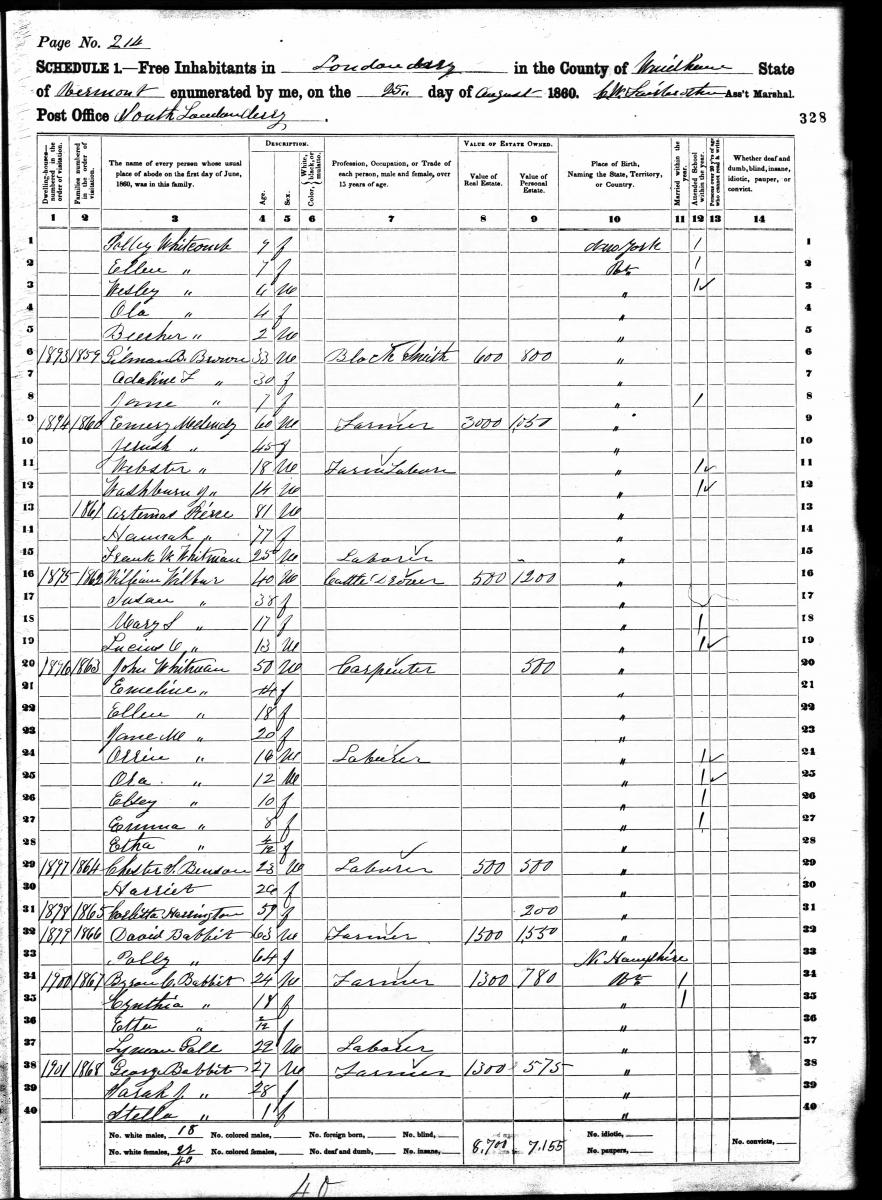 Page No. 214
SCHEDULE 1.—Free Inhabitants in Londonderry in the County of Windham State
of Vermont enumerated by me, on the 25" day of August 1860. Ass't Marshal.
Post Office South Londonderry
328
Dwelling-houses—numbered in the order of visitation.
Families numbered in the order of visitation.
The name of every person whose usual place of abode on the first day of June, 1860, was in this family.
DESCRIPTION.
Age.
Sex.
Color, White, black, or mulatto.
Profession, Occupation, or Trade of each person, male and female, over 15 years of age.
VALUE OF ESTATE OWNED.
Value of Real Estate.
Value of Personal Estate.
Place of Birth, Naming the State, Territory, or Country.
Married within the year.
Attended School within the year.
Persons over 20 y'rs of age who cannot read & write.
Whether deaf and dumb, blind, insane, idiotic, pauper, or convict.
1 2 3 4 5 6 7 8 9 10 11 12 13 14
1 Polley Whitcomb 9 f New York 1 1
2 Ellen " 7 f Vt 1 2
3 Wesley " 6 m " 1 3
4 Ola " 4 f " 4
5 Beecher " 2 m " 5
6 1893 1859 Gilman B. Brown 33 m Black Smith 600 800 " 6
7 Adaline L " 30 f " 7
8 Jane " 7 f " 1 8
9 1894 1860 Emery Melendy 60 m Farmer 3000 1,050 " 9
10 Jerush " 45 f " 10
11 Webster " 18 m Farm Labore " 1 11
12 Washburn " 14 m " 1 12
13 1861 Artemas Pierce 81 m " 13
14 Hannah " 77 f " 14
15 Frank W. Whitman 25 m Laborer " 15
16 1895 1862 William Wilbur 40 m Cattle Drover 500 1200 " 16
17 Susan " 38 f " 17
18 Mary S " 17 f " 1 18
19 Lucius C " 13 m " 1 19
20 1896 1863 John Whitman 50 m Carpenter 500 " 20
21 Emeline " f " 21
22 Ellen " 18 f " 22
23 Jane M " 20 f " 23
24 Orrin " 16 m Laborer " 1 24
25 Osa " 12 m " 1 25
26 Elsey " 10 f " 1 26
27 Emma " 8 f " 1 27
28 Etha " 4/12 f " 28
29 1897 1864 Chester S. Benson 23 m Laborer 500 500 " 29
30 Harriet f " 30
31 1898 1865 Harrington 59 f 200 " 31
32 1899 1866 David Babbit 63 m Farmer 1500 1,550 " 32
33 Polly " 64 f N. Hampshire 33
34 1900 1867 Byron C. Babbit 24 m Farmer 1300 780 Vt 1 34
35 Cynthia " 18 f " 1 35
36 Etta " 2/12 f " 36
37 Lyman Gale 22 m Laborer " 37
38 1901 1868 George Babbit 27 m Farmer 1300 575 " 38
39 Sarah J. " 28 f " 39
40 Stella " 1 f " 40
No. white males, 18 No. colored males, No. foreign born, No. blind, No. idiotic,
No. white females, 22 No. colored females, No. deaf and dumb, No. insane, 8,700 7,155 No. paupers, No. convicts,
40
40